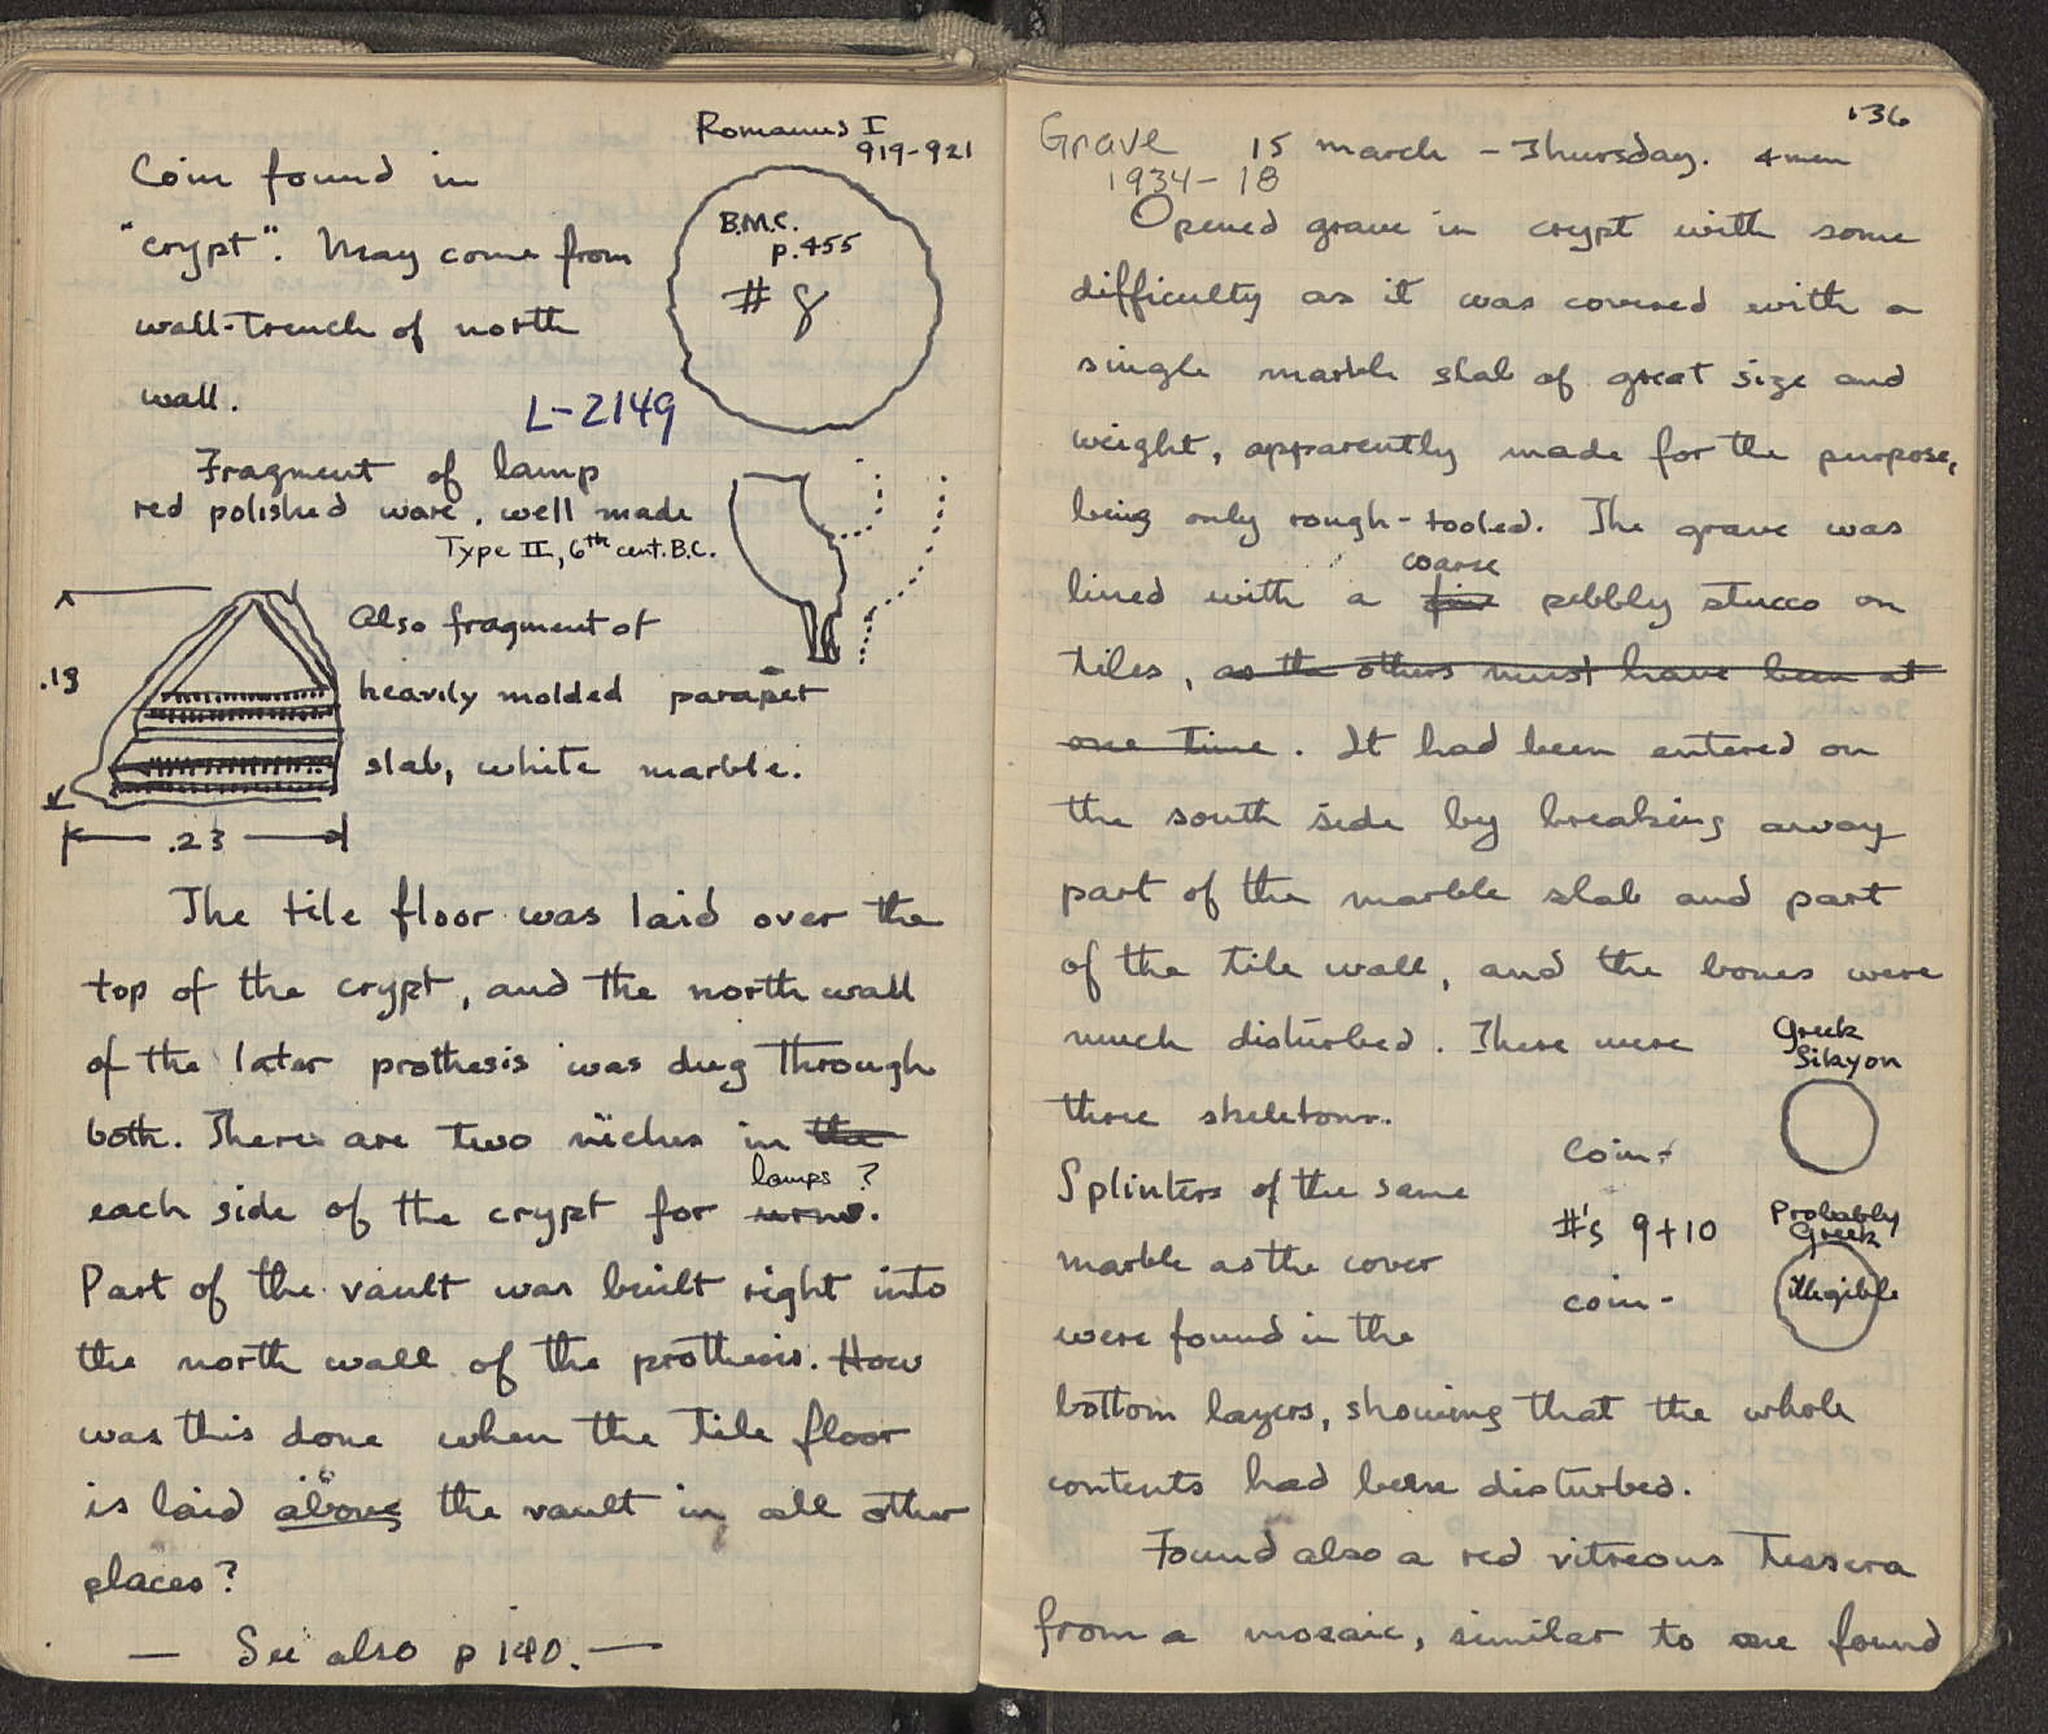 Romanus I
919-921
Coin found in
"crypt". May come from
wall-trench of north
wall.
B.M.C.
p. 455
# 8
L-2149
Fragment of lamp
red polished ware, well made
Type II, 6th cent. B.C.
.19
Also fragment of
heavily molded parapet
slab, white marble.
.23
The tile floor was laid over the
top of the crypt, and the north wall
of the later prothesis was dug through
both. There are two niches in the
lamps ?
each side of the crypt for urns.
Part of the vault was built right into
the north wall of the prothesis. How
was this done when the tile floor
is laid above the vault in all other
places?
— See also p 140. —
136
Grave 15 march - Thursday. 4 men
1934-18
Opened grave in crypt with some
difficulty as it was covered with a
single marble slab of great size and
weight, apparently made for the purpose,
being only rough-tooled. The grave was
coarse
lined with a fine pebbly stucco on
tiles, as the others must have been at
one time. It had been entered on
the south side by breaking away
part of the marble slab and part
of the tile wall, and the bones were
much disturbed. There were
three skeletons.
Greek
Sikyon
coin-
#'s 9+10
Probably
Greek
coin-
illegible
Splinters of the same
marble as the cover
were found in the
bottom layers, showing that the whole
contents had been disturbed.
Found also a red vitreous tessera
from a mosaic, similar to one found